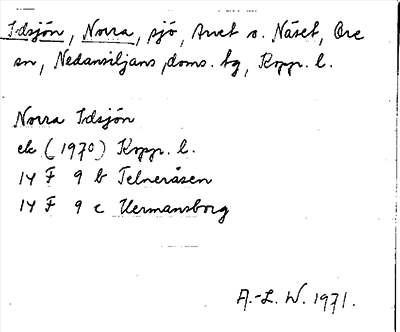 Idsjön, Norra, sjö, Arvet o. Näset, Ore
sn, Nedansiljans doms. tg, Kopp. l.
Norra Idsjön
ek (1970) Kopp. l.
14 F 9 b Telneråsen
14 F 9 c Hermansborg
A.-L. W. 1971.